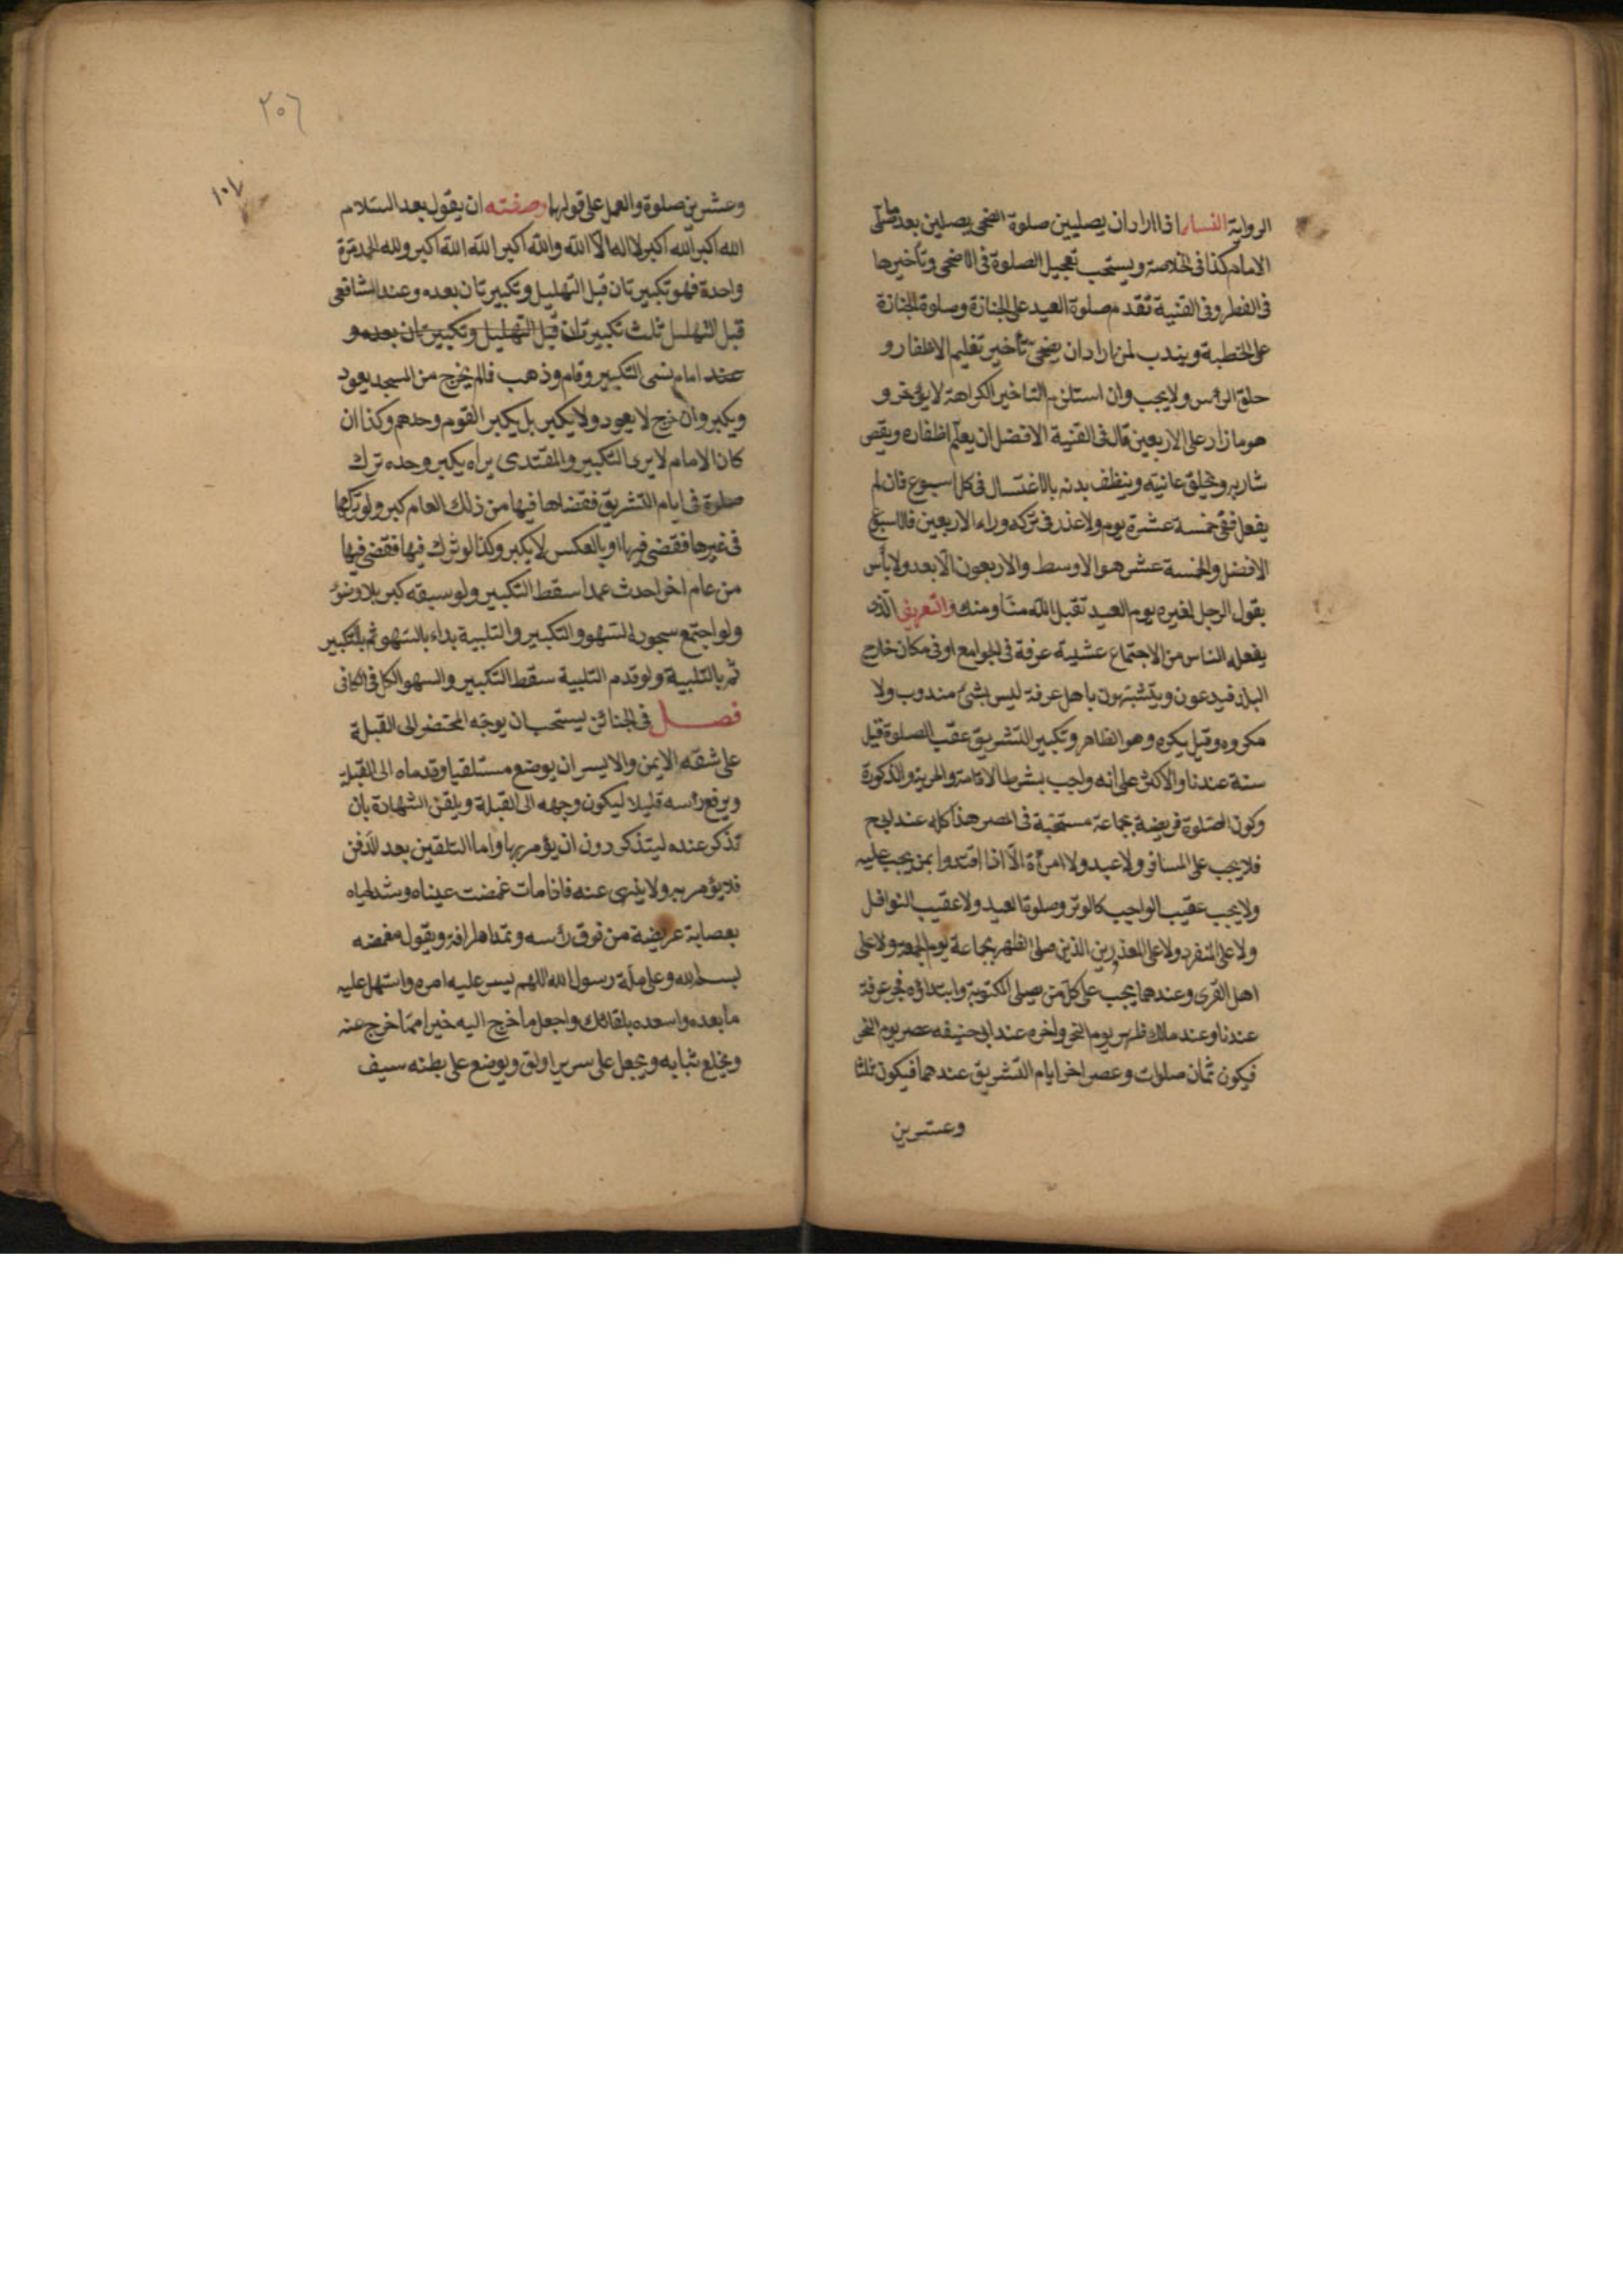 الرواية النساء اذا اراد ان يصليين صلوة الضحى يصلين بعد ما صلى
الامام كذا فى الخلاصة ويستحب تعجيل الصلوة فى الاضحى وتأخيرها
فى الفطر وفى القنية تقدم صلوة العيد على الجنازة وصلوة الجنازة
على الخطبة ويندب لمن اراد ان يضحى تأخير تقليم الاظفار و
حلق الرأس ولا يجب وان استلزم التاخير الكراهة لا يؤخر و
هو ما زاد على الاربعين قال فى القنية الافضل ان يقلم اظفاره ويقص
شاربه ويحلق عانته وينظف بدنه بالاغتسال فى كل اسبوع فان لم
يفعل ففى خمسة عشرة يوم ولا عذر فى تركه وراء الاربعين فالاسبوع
الافضل والخمسة عشر هو الاوسط والاربعون الابعد ولا بأس
بقول الرجل لغيره يوم العيد تقبل الله منا ومنك والتعريف الذى
يفعله الناس من الاجتماع عشية عرفة فى الجوامع او فى مكان خارج
البلد فيدعون ويتشبهون باهل عرفة ليس بشئ مندوب ولا
مكروه وقيل يكره وهو الظاهر وتكبير التشريق عقب الصلوة قيل
سنة عندنا والاكثر على انه واجب بشرط الاقامة والحرية والذكورة
وكون الصلوة فريضة بجماعة مستحبة فى المصر هذا كله عند ابى ح
فلا يجب على المسافر ولا عبد ولا امرأة الا اذا اقتدوا بمن يجب عليه
ولا يجب عقيب الواجب كالوتر وصلوتا العيد ولا عقيب النوافل
ولا على المنفرد ولا على المعذورين الذين صلى الظهر بجماعة يوم الجمعة ولا على
اهل القرى وعندهما يجب على كل من يصلى المكتوبة وابتداؤه فجر عرفة
عندنا وعند ملك ظهر يوم النحر واخره عند ابى حنيفه عصر يوم النحر
فيكون ثمان صلوات وعصر اخر ايام التشريق عندهما فيكون ثلثا
وعشرين
٢٠٦
١٠٧
وعشرين صلوة والعمل على قولهما وصفته ان يقول بعد السلام
الله اكبر الله اكبر لا اله الا الله والله اكبر الله الله اكبر ولله الحمد مرة
واحدة فهو تكبيرتان قبل التهليل وتكبيرتان بعده وعند الشافعى
قبل التهلسل ثلث تكبيرتان قبل التهليل وتكبيرتان بعده و
عند امام نسى التكبير وقام وذهب فالم يخرج من المسجد يعود
ويكبر وان خرج لا يعود ولا يكبر بل يكبر القوم وحدهم وكذا ان
كان الامام لا يرى التكبير والمقتدى يراه يكبر وحده ترك
صلوة فى ايام التشريق فقضاها فيها من ذلك العام كبر ولو تركها
فى غيرها فقضى فيها او بالعكس لا يكبر وكذا لو ترك فيها فقضى فيها
من عام اخر احدث عمدا سقط التكبير ولو سبقه كبر بلا وضؤ
ولو اجتمع سجود السهو والتكبير والتلبية بداء بالسهو ثم بالتكبير
ثم بالتلبية ولو قدم التلبية سقط التكبير والسهو الكل فى الكافى
فصل فى الجنائز يستحب ان يوجه المحتضر الى القبلة
على شقه الايمن والايسر ان يوضع مستلقيا وقدماه الى القبلة
ويرفع رأسه قليلا ليكون وجهه الى القبلة ويلقن الشهادة بان
تذكر عنده ليتذكر دون ان يؤمر بها واما التلقين بعد الدفن
فلا يؤمر به ولا ينهى عنه فاذا مات غمضت عيناه وشد لحياه
بعصابة عريضة من فوق رأسه وتمد اطرافه ويقول مغمضه
بسم الله وعلى ملة رسول الله اللهم يسر عليه امره واستهل عليه
ما بعده واسعده بلقائك واجعل ما خرج اليه خيرا مما خرج عنه
ويخلع ثيابه ويجعل على سرير اولق ويوضع على بطنه سيف